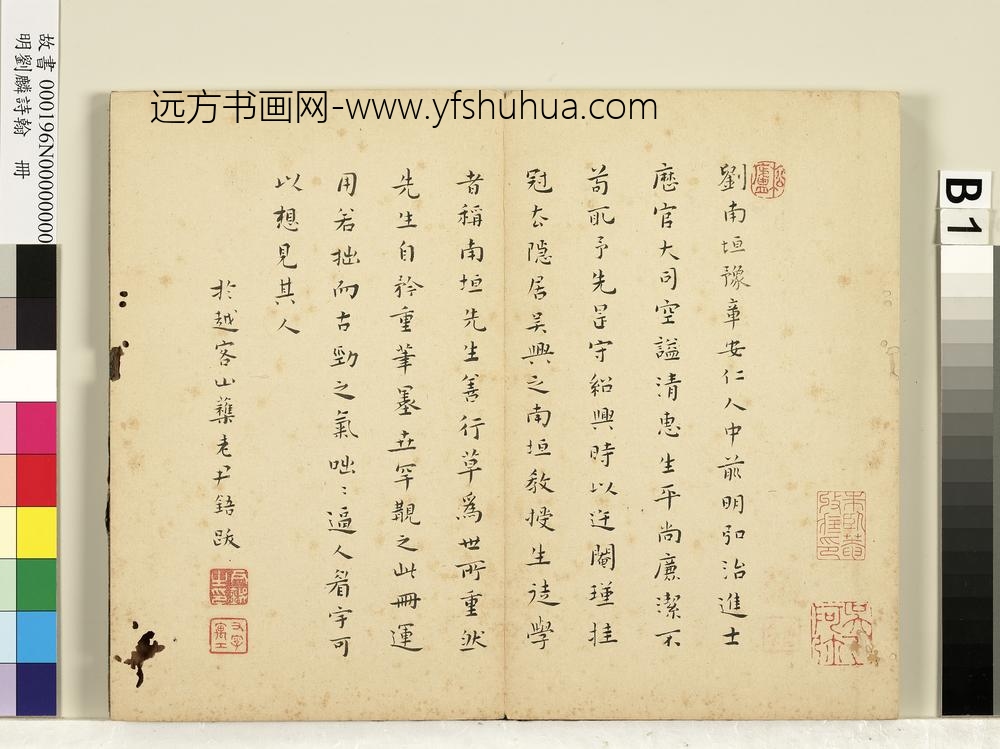 远方书画网-www.yfshuhua.com
故書 000196N000000000
明劉麟詩翰 冊
B1
劉南垣豫章安仁人中前明弘治進士
歷官大司空謚清惠生平尚廉潔不
苟取予先是守紹興時以迕閹瑾挂
冠去隱居吳興之南垣教授生徒學
者稱南垣先生善行草爲世所重然
先生自矜重筆墨世罕觀之此冊運
用若拙而古勁之氣咄〻逼人看字可
以想見其人
於越客山藥老尹鋙跋